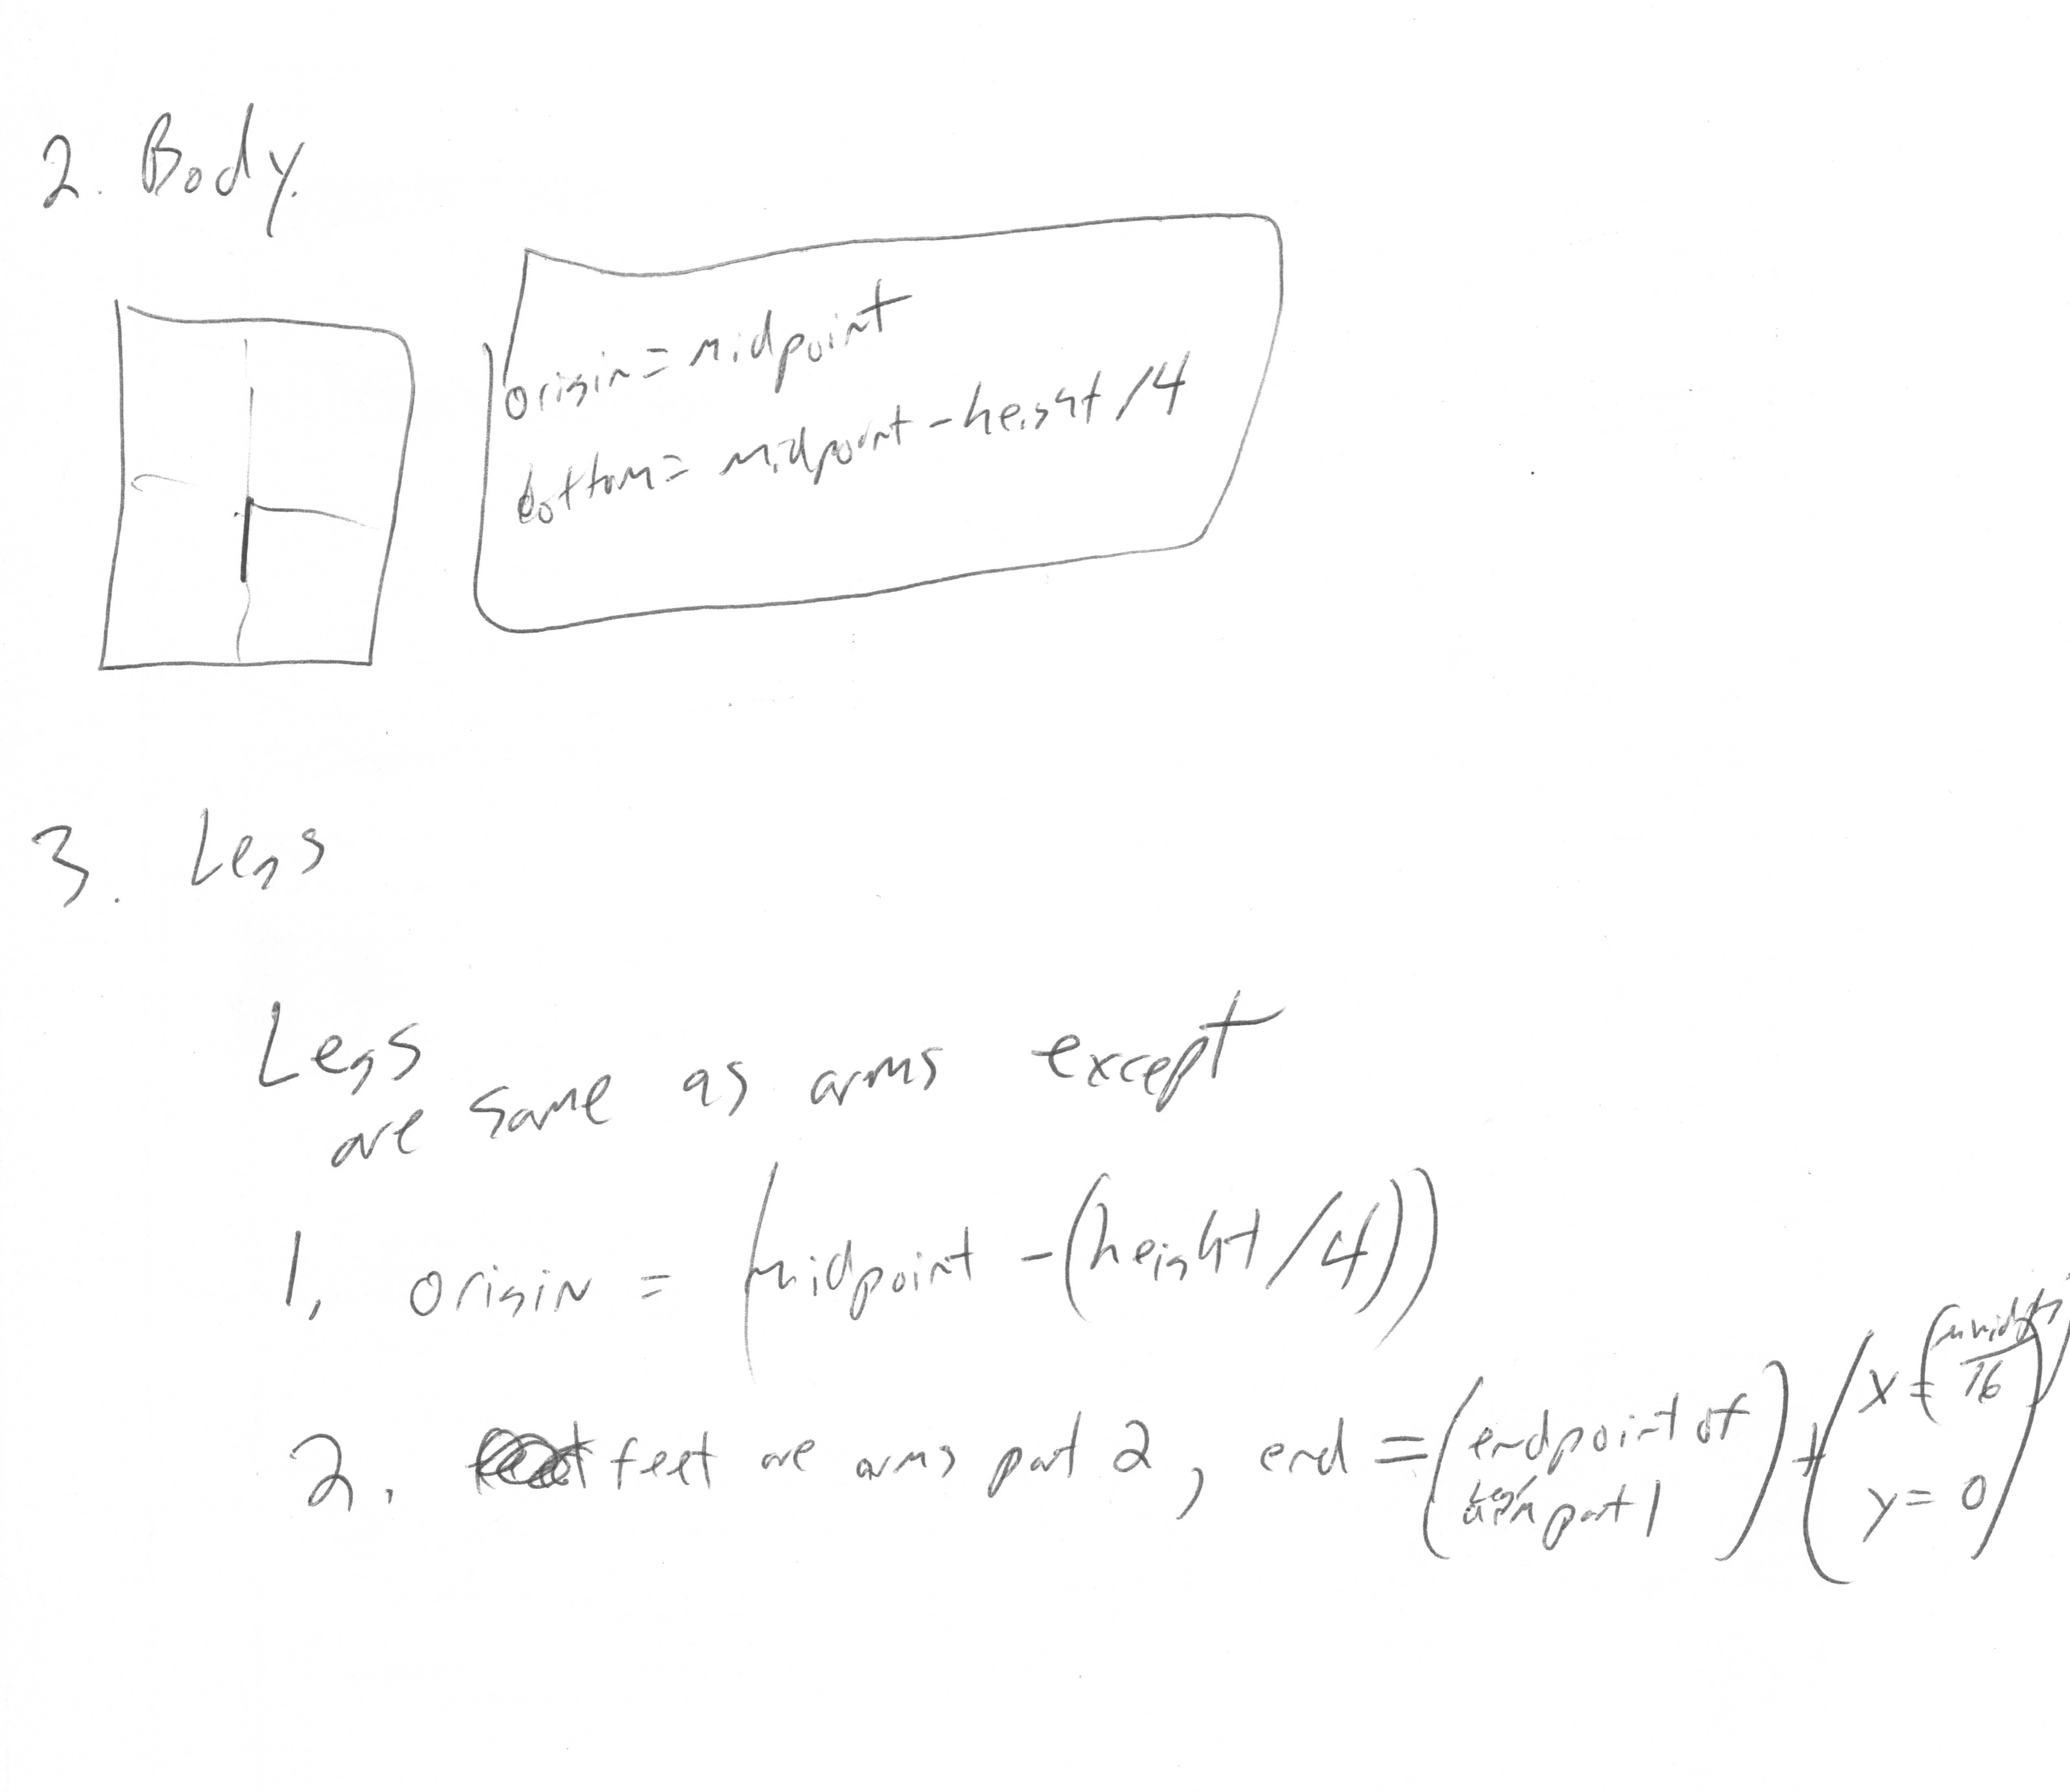 2. Body.
origin = midpoint
bottom = midpoint - height/4
3. Legs
Legs
are same as arms except
1, origin = (midpoint - (height/4))
2. feet are arms part 2, end = (endpoint of part 1) + (x = (width/16) y = 0)